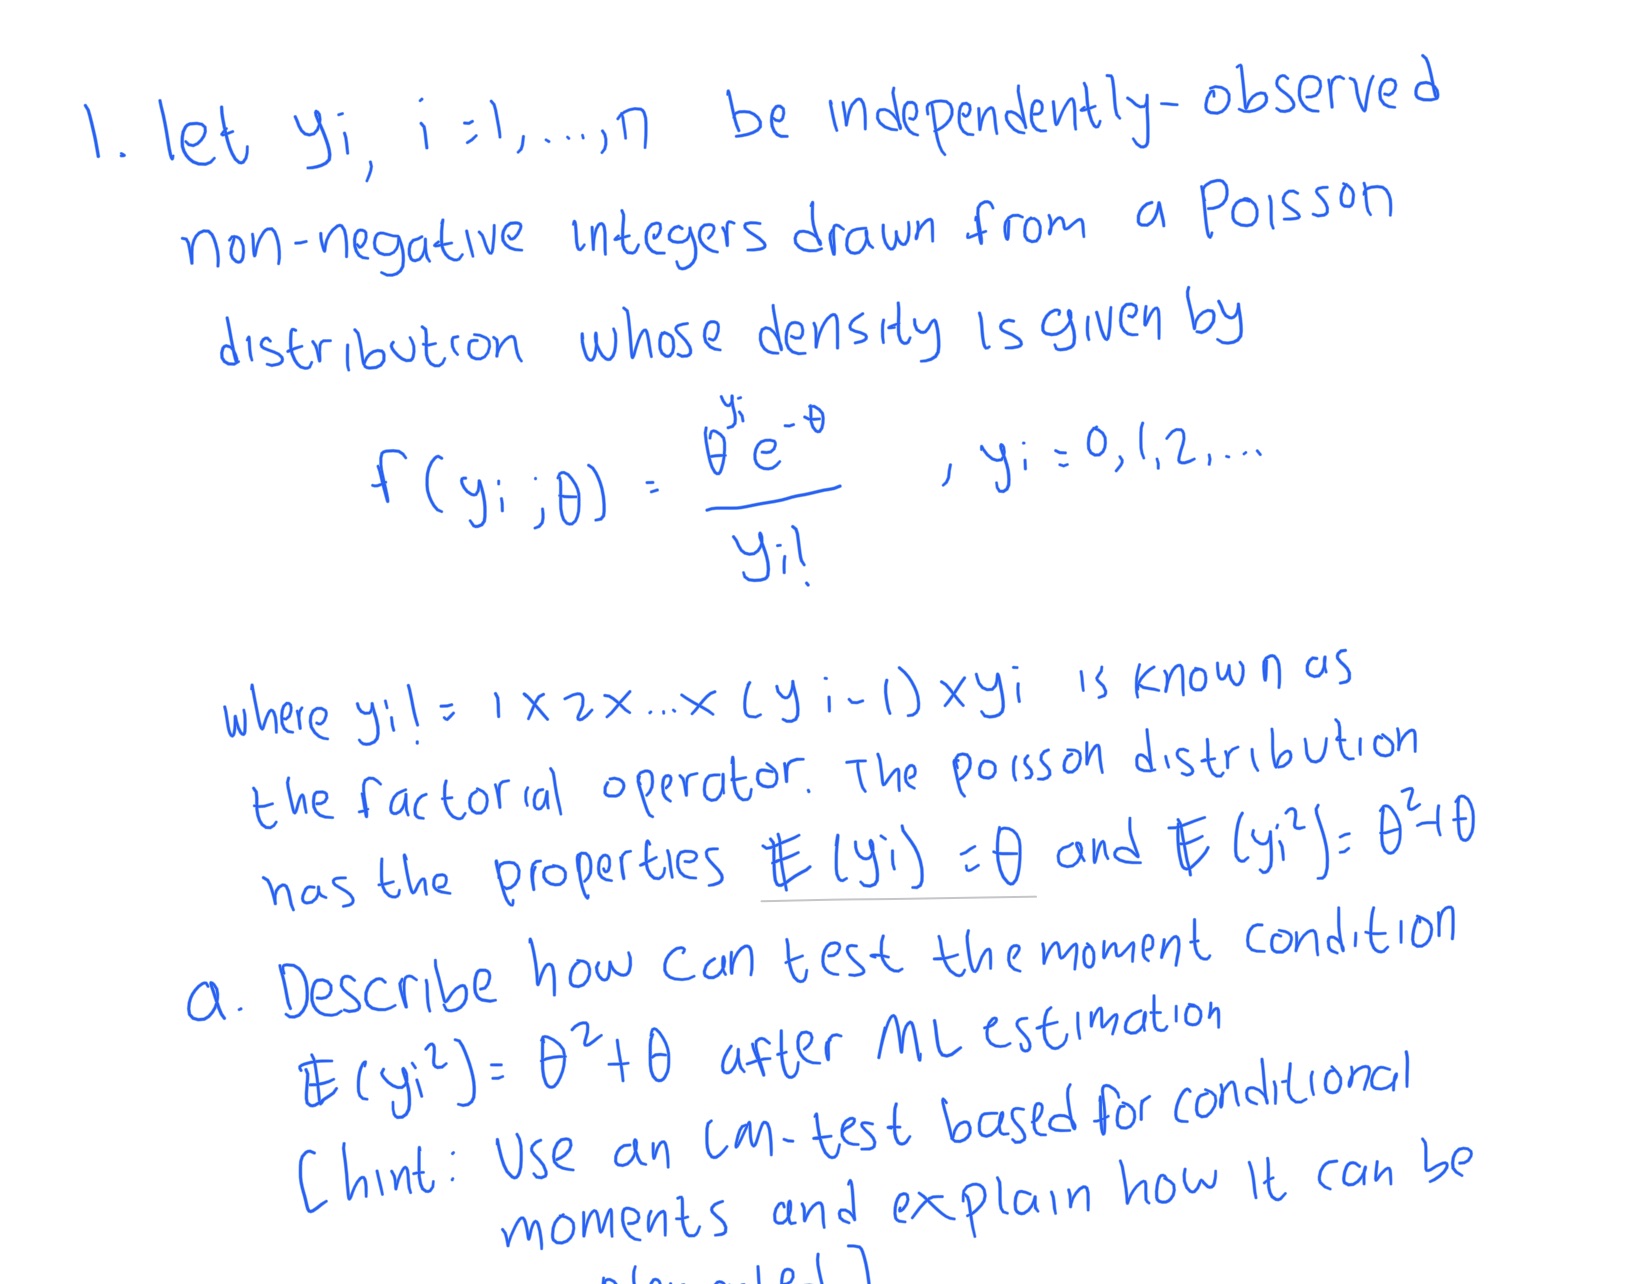 1. let yi, i=1,...,n be independently-observed
non-negative integers drawn from a Poisson
distribution whose density is given by
f(yi;θ) = θ^yi e^-θ / yi! , yi = 0,1,2,...
where yi! = 1 x 2 x ... x (yi-1) x yi is known as
the factorial operator. The poisson distribution
has the properties 𝔼(yi) = θ and 𝔼(yi²) = θ²+θ
a. Describe how can test the moment condition
𝔼(yi²) = θ²+θ after ML estimation
[hint: Use an LM-test based for conditional
moments and explain how it can be